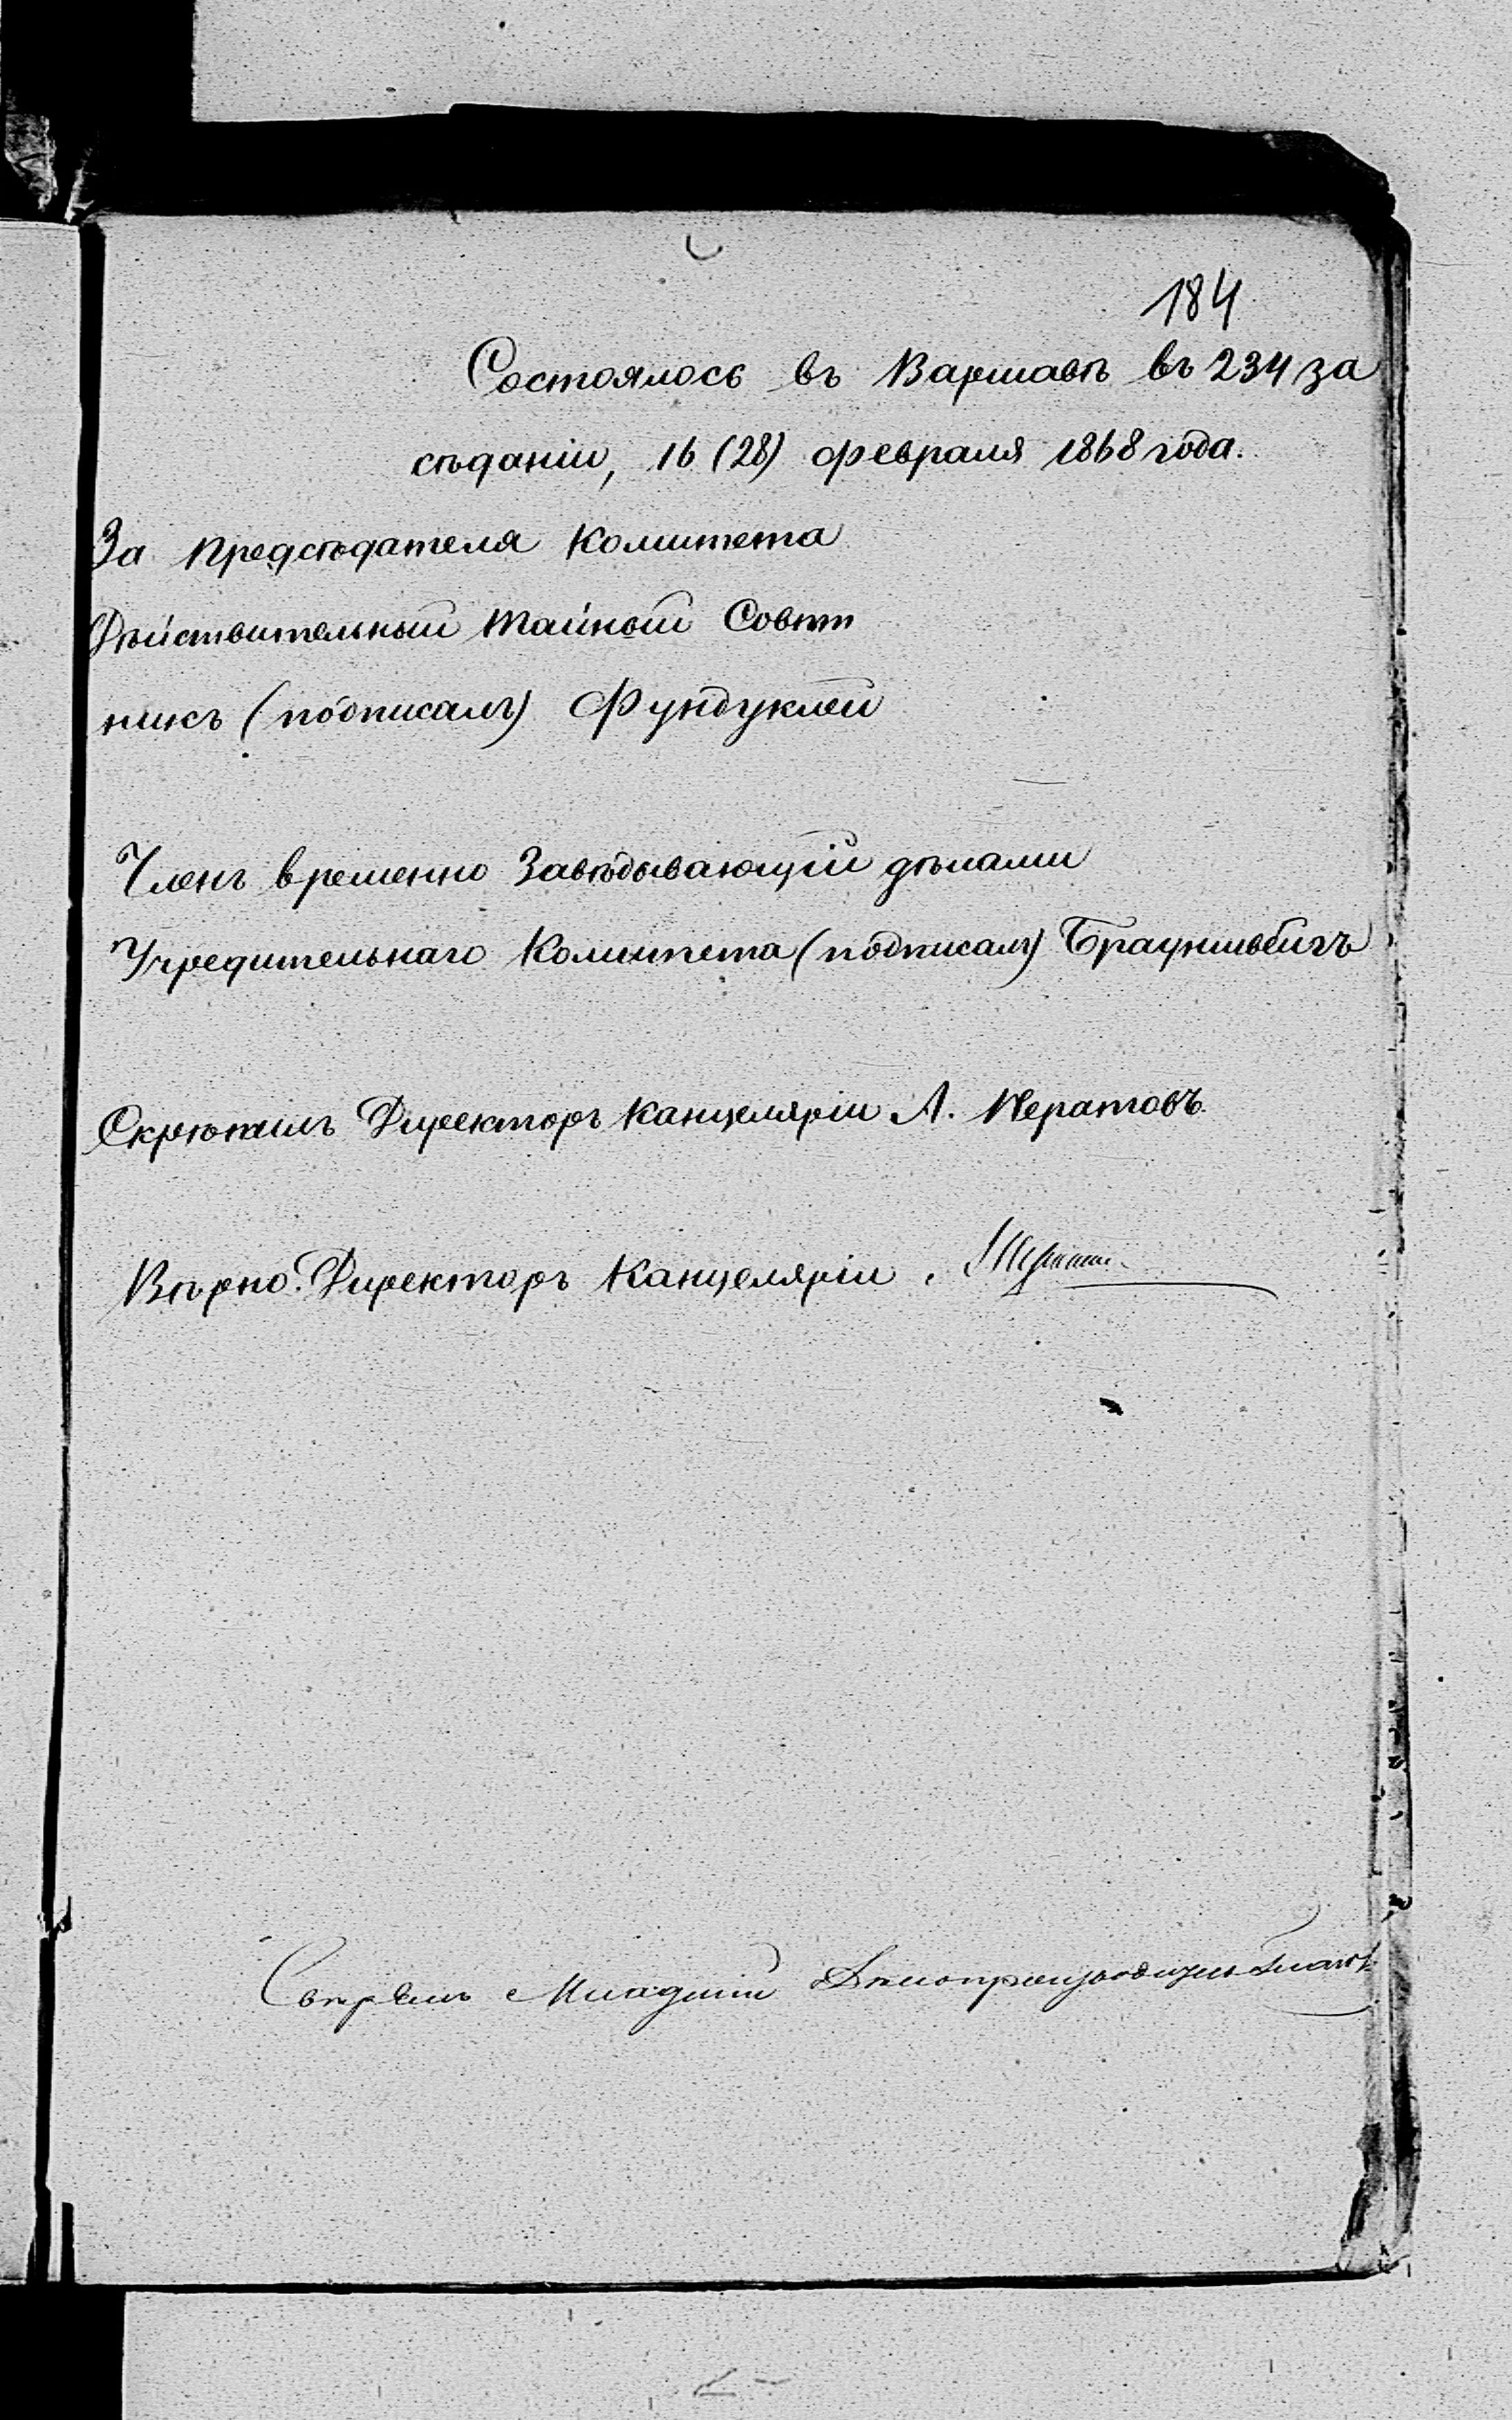 184
Состоялось въ Варшавѣ въ 234 за
сѣданіи, 16 (28) февраля 1868 года.
За Предсѣдателя Комитета
Дѣйствительный Тайный Совѣт
никъ (подписалъ) Фундуклей
Членъ временно Завѣдывающій дѣлами
Учредительнаго Комитета (подписалъ) Брауншвейгъ
Скрѣпилъ Директоръ Канцеляріи А. Нератовъ.
Вѣрно: Директоръ Канцеляріи
Свѣрялъ Младшій Дѣлопроизводитель